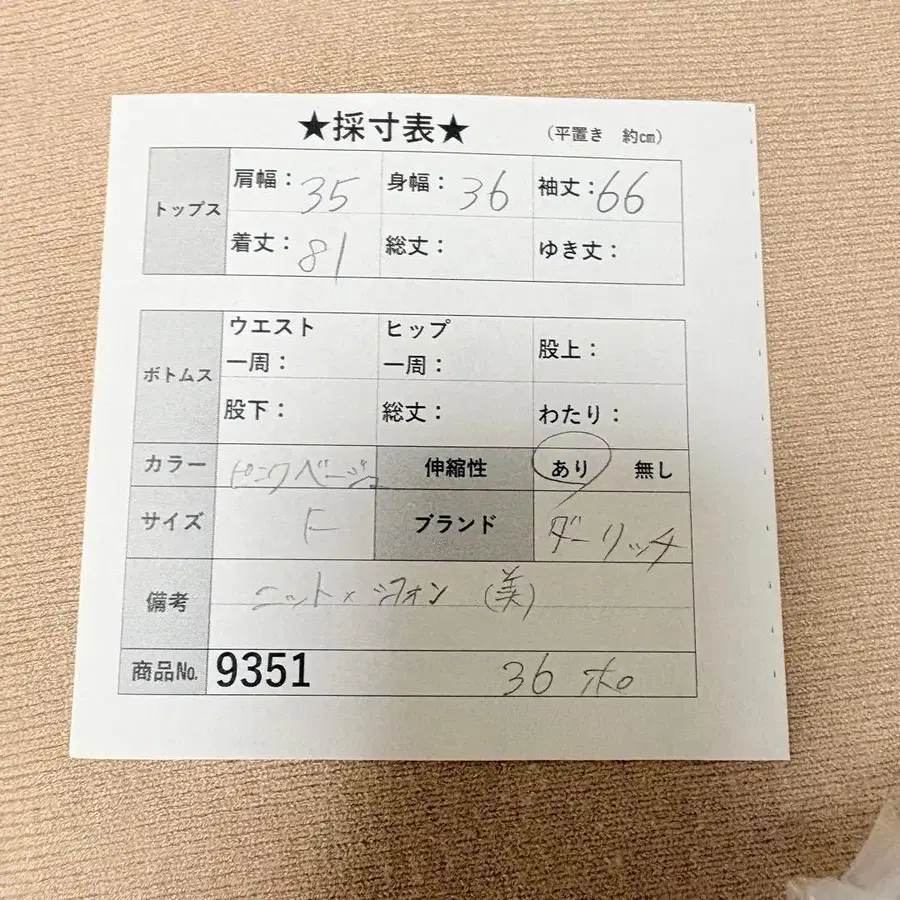 ★採寸表★ （平置き 約㎝）
トップス
肩幅：35 身幅：36 袖丈：66
着丈：81 総丈： ゆき丈：
ボトムス
ウエスト一周： ヒップ一周： 股上：
股下： 総丈： わたり：
カラー ピンクベージュ 伸縮性 あり 無し
サイズ F ブランド ダーリッチ
備考 ニット×シフォン (美)
商品№ 9351 36 ポ